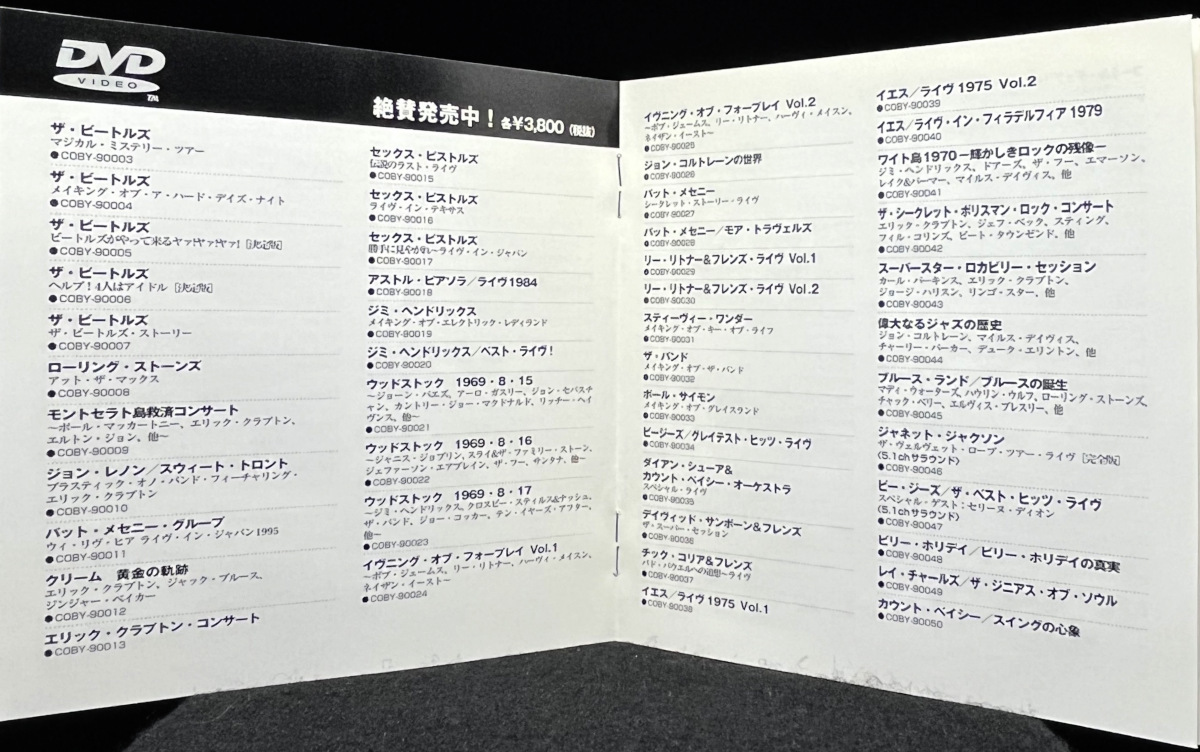 DVD
VIDEO
TM
絶賛発売中！各¥3,800（税抜）
ザ・ビートルズ
マジカル・ミステリー・ツアー
●COBY-90003
ザ・ビートルズ
メイキング・オブ・ア・ハード・デイズ・ナイト
●COBY-90004
ザ・ビートルズ
ビートルズがやって来るヤァ!ヤァ!ヤァ!［決定版］
●COBY-90005
ザ・ビートルズ
ヘルプ！4人はアイドル［決定版］
●COBY-90006
ザ・ビートルズ
ザ・ビートルズ・ストーリー
●COBY-90007
ローリング・ストーンズ
アット・ザ・マックス
●COBY-90008
モントセラト島救済コンサート
～ポール・マッカートニー、エリック・クラプトン、
エルトン・ジョン、他～
●COBY-90009
ジョン・レノン／スウィート・トロント
プラスティック・オノ・バンド・フィーチャリング・
エリック・クラプトン
●COBY-90010
パット・メセニー・グループ
ウィ・リヴ・ヒア ライヴ・イン・ジャパン1995
●COBY-90011
クリーム　黄金の軌跡
エリック・クラプトン、ジャック・ブルース、
ジンジャー・ベイカー
●COBY-90012
エリック・クラプトン・コンサート
●COBY-90013
セックス・ピストルズ
伝説のラスト・ライヴ
●COBY-90015
セックス・ピストルズ
ライヴ・イン・テキサス
●COBY-90016
セックス・ピストルズ
勝手に見やがれ～ライヴ・イン・ジャパン
●COBY-90017
アストル・ピアソラ／ライヴ1984
●COBY-90018
ジミ・ヘンドリックス
メイキング・オブ・エレクトリック・レディランド
●COBY-90019
ジミ・ヘンドリックス／ベスト・ライヴ！
●COBY-90020
ウッドストック 1969・8・15
～ジョーン・バエズ、アーロ・ガスリー、ジョン・セバスチ
ャン、カントリー・ジョー・マクドナルド、リッチー・ヘイ
ヴンス、他～
●COBY-90021
ウッドストック 1969・8・16
～ジャニス・ジョプリン、スライ&ザ・ファミリー・ストーン、
ジェファーソン・エアプレイン、ザ・フー、サンタナ、他～
●COBY-90022
ウッドストック 1969・8・17
～ジミ・ヘンドリックス、クロスビー・スティルス&ナッシュ、
ザ・バンド、ジョー・コッカー、テン・イヤーズ・アフター、
他～
●COBY-90023
イヴニング・オブ・フォープレイ Vol.1
～ボブ・ジェームス、リー・リトナー、ハーヴィ・メイスン、
ネイザン・イースト～
●COBY-90024
イヴニング・オブ・フォープレイ Vol.2
～ボブ・ジェームス、リー・リトナー、ハーヴィ・メイスン、
ネイザン・イースト～
●COBY-90025
ジョン・コルトレーンの世界
●COBY-90026
パット・メセニー
シークレット・ストーリー・ライヴ
●COBY-90027
パット・メセニー／モア・トラヴェルズ
●COBY-90028
リー・リトナー&フレンズ・ライヴ Vol.1
●COBY-90029
リー・リトナー&フレンズ・ライヴ Vol.2
●COBY-90030
スティーヴィー・ワンダー
メイキング・オブ・キー・オブ・ライフ
●COBY-90031
ザ・バンド
メイキング・オブ・ザ・バンド
●COBY-90032
ポール・サイモン
メイキング・オブ・グレイスランド
●COBY-90033
ビージーズ／グレイテスト・ヒッツ・ライヴ
●COBY-90034
ダイアン・シューア&
カウント・ベイシー・オーケストラ
スペシャル・ライヴ
●COBY-90035
デイヴィッド・サンボーン&フレンズ
ザ・スーパー・セッション
●COBY-90036
チック・コリア&フレンズ
バド・パウエルへの追想～ライヴ
●COBY-90037
イエス／ライヴ 1975 Vol.1
●COBY-90038
イエス／ライヴ 1975 Vol.2
●COBY-90039
イエス／ライヴ・イン・フィラデルフィア 1979
●COBY-90040
ワイト島1970－輝かしきロックの残像－
ジミ・ヘンドリックス、ドアーズ、ザ・フー、エマーソン、
レイク&パーマー、マイルス・デイヴィス、他
●COBY-90041
ザ・シークレット・ポリスマン・ロック・コンサート
エリック・クラプトン、ジェフ・ベック、スティング、
フィル・コリンズ、ピート・タウンゼンド、他
●COBY-90042
スーパースター・ロカビリー・セッション
カール・パーキンス、エリック・クラプトン、
ジョージ・ハリスン、リンゴ・スター、他
●COBY-90043
偉大なるジャズの歴史
ジョン・コルトレーン、マイルス・デイヴィス、
チャーリー・パーカー、デューク・エリントン、他
●COBY-90044
ブルース・ランド／ブルースの誕生
マディ・ウォーターズ、ハウリン・ウルフ、ローリング・ストーンズ、
チャック・ベリー、エルヴィス・プレスリー、他
●COBY-90045
ジャネット・ジャクソン
ザ・ヴェルヴェット・ロープ・ツアー・ライヴ［完全版］
〈5.1chサラウンド〉
●COBY-90046
ビー・ジーズ／ザ・ベスト・ヒッツ・ライヴ
スペシャル・ゲスト：セリーヌ・ディオン
〈5.1chサラウンド〉
●COBY-90047
ビリー・ホリデイ／ビリー・ホリデイの真実
●COBY-90048
レイ・チャールズ／ザ・ジニアス・オブ・ソウル
●COBY-90049
カウント・ベイシー／スイングの心象
●COBY-90050